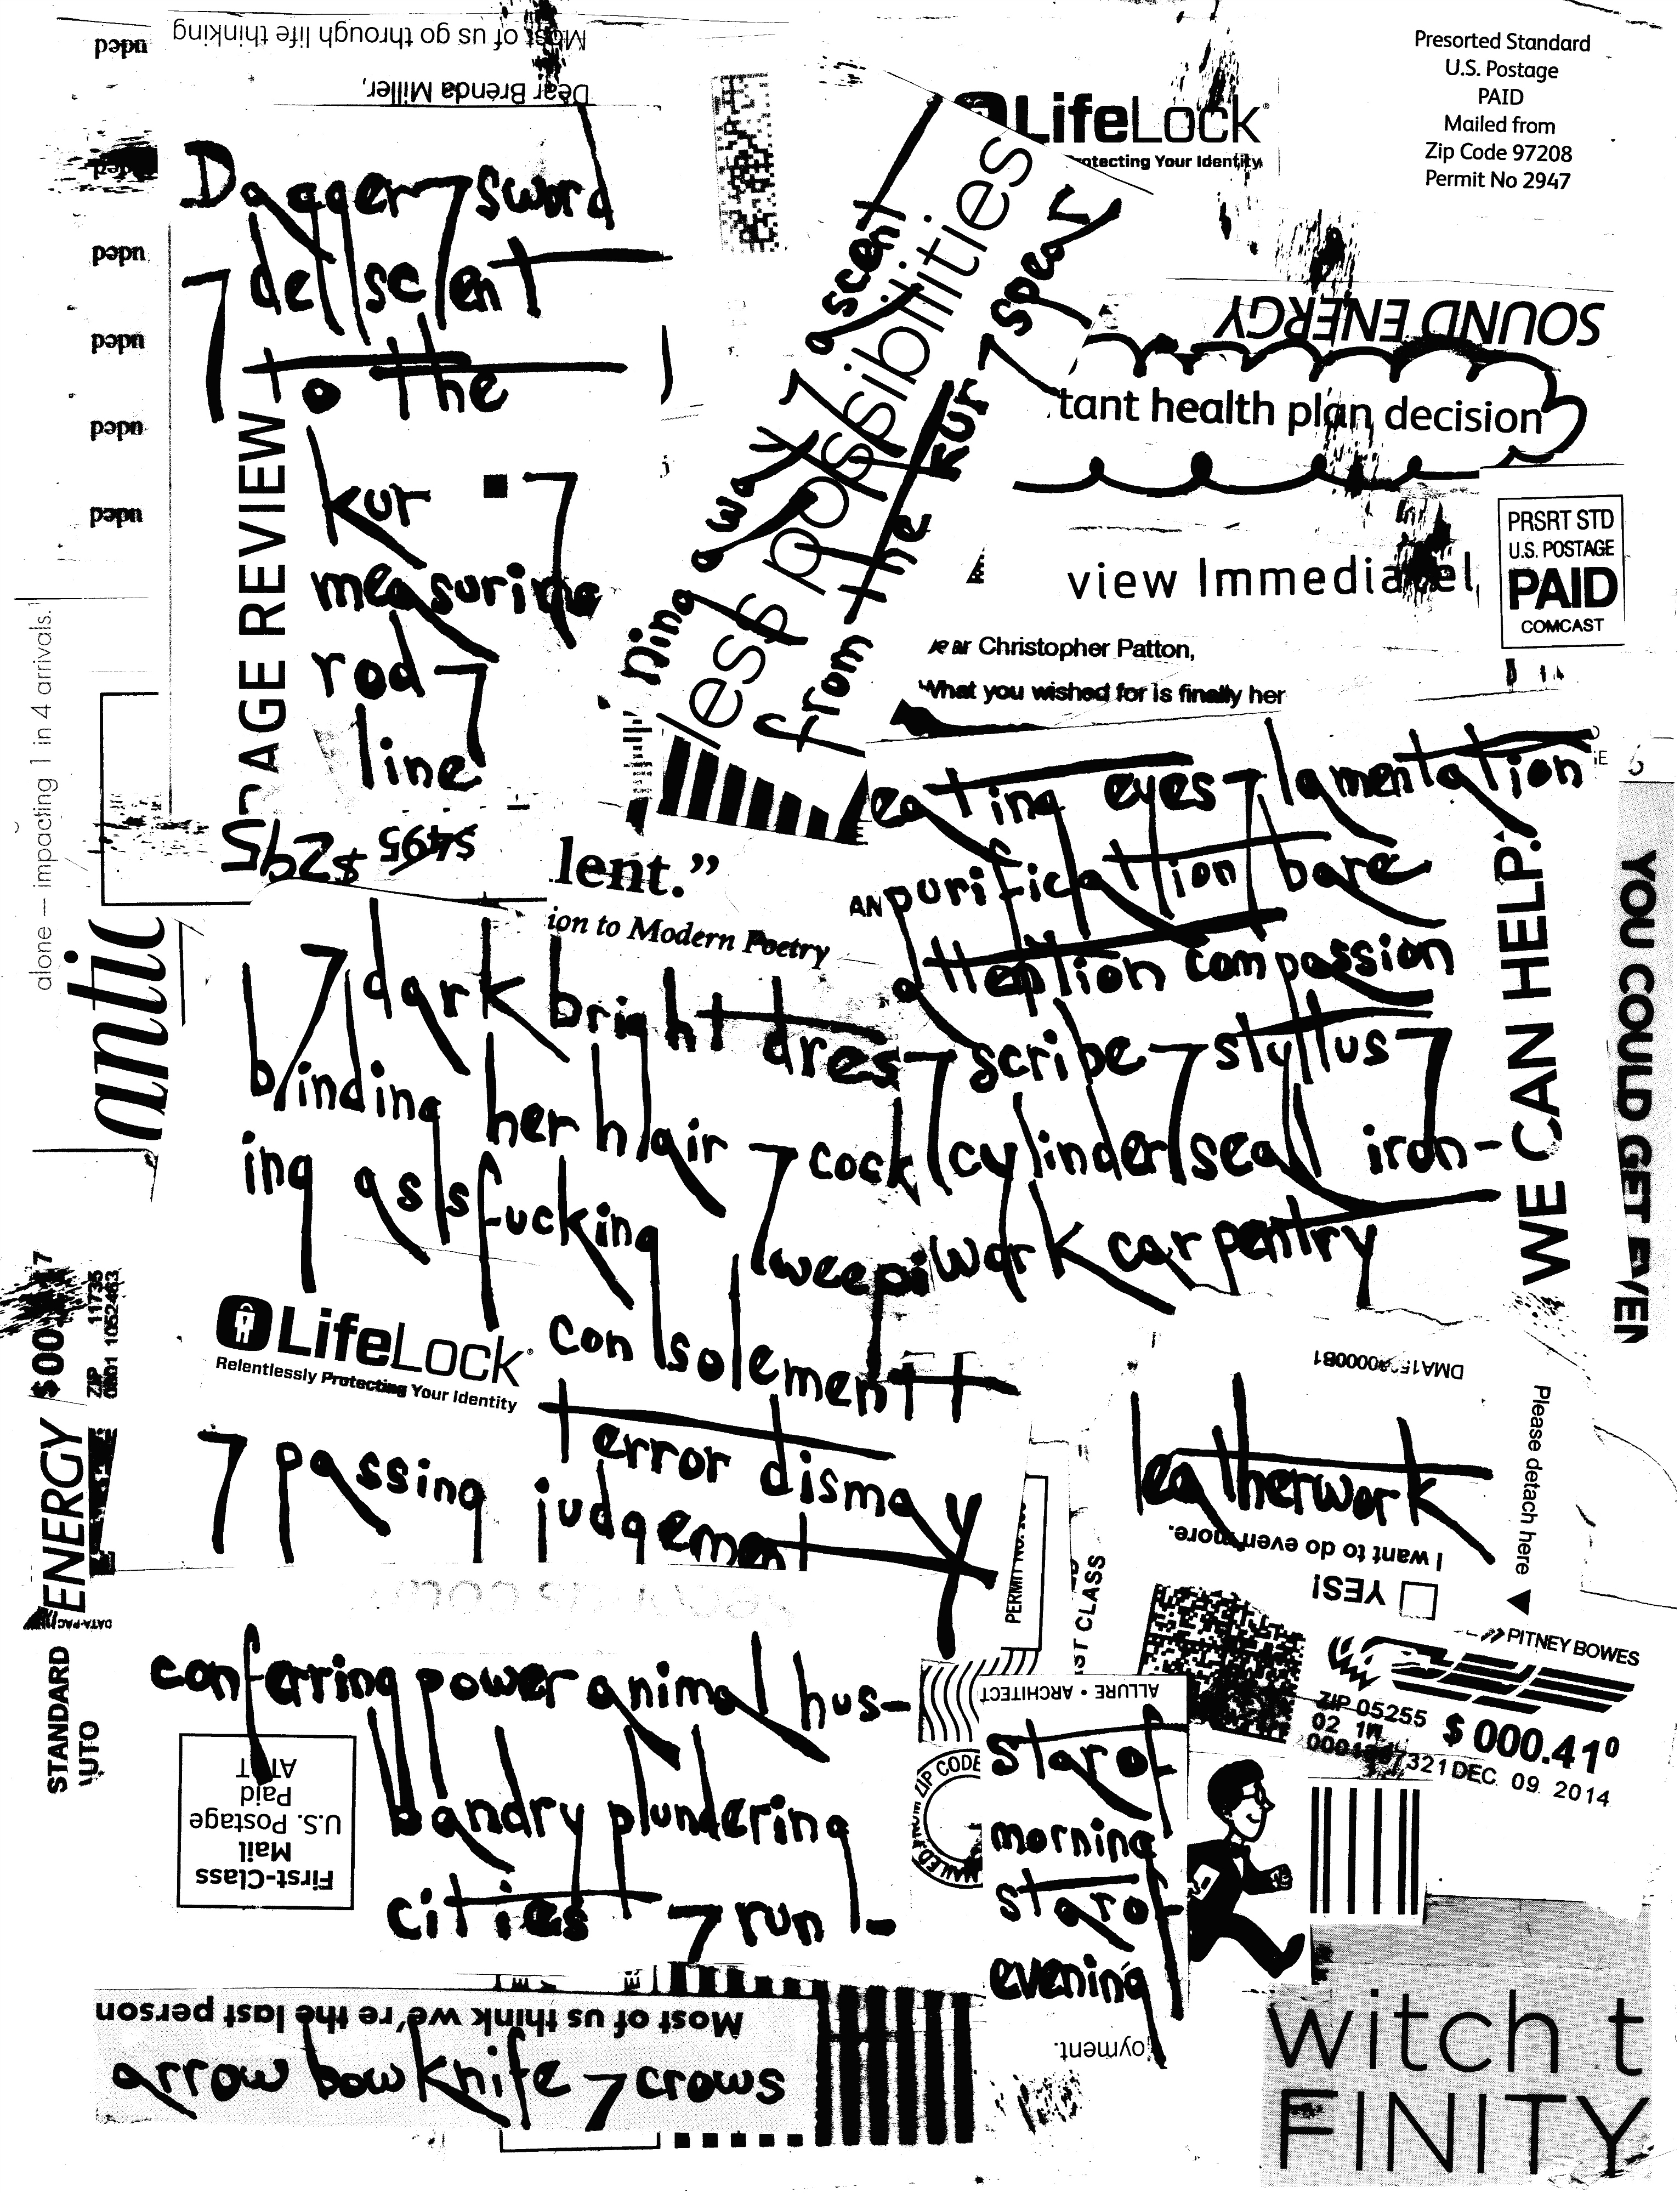 Most of us go through life thinking
Dear Brenda Miller,
LifeLock
Protecting Your Identity
Presorted Standard
U.S. Postage
PAID
Mailed from
Zip Code 97208
Permit No 2947
Dagger 7 sword
7 descent
to the
kur 7
measuring
rod 7
line
PAGE REVIEW
$495 $295
ning away 7 ascent
less possibilities
from the kur 7 spear
SOUND ENERGY
tant health plan decision
view Immedia el
PRSRT STD
U.S. POSTAGE
PAID
COMCAST
ear Christopher Patton,
What you wished for is finally her
alone – impacting 1 in 4 arrivals.
antic
lent.”
ion to Modern Poetry
eating eyes 7 lamentation
AN purification bare
attention compassion
7 scribe 7 styllus 7
cock cylinder seal iron-
work carpentry
WE CAN HELP.
YOU COULD GET EVEN
7 dark bright dres
binding her hair 7
ing ass fucking 7 weepi
LifeLock
Relentlessly Protecting Your Identity
consolement
terror dismay
7 passing judgement
leatherwork
I want to do even more.
YES!
Please detach here
ZIP 11735
0801 1052463
ENERGY
STANDARD
AUTO
PERMIT NO.
ST CLASS
conferring power animal hus-
bandry plundering
cities 7 run-
First-Class
Mail
U.S. Postage
Paid
AT&T
ALLURE • ARCHITECT
MAILED FROM ZIP CODE
star of
morning
star of
evening
oyment.
PITNEY BOWES
ZIP 05255
02 1W
$ 000.41⁰
321 DEC. 09. 2014
Most of us think we're the last person
arrow bow knife 7 crows
witch t
FINITY